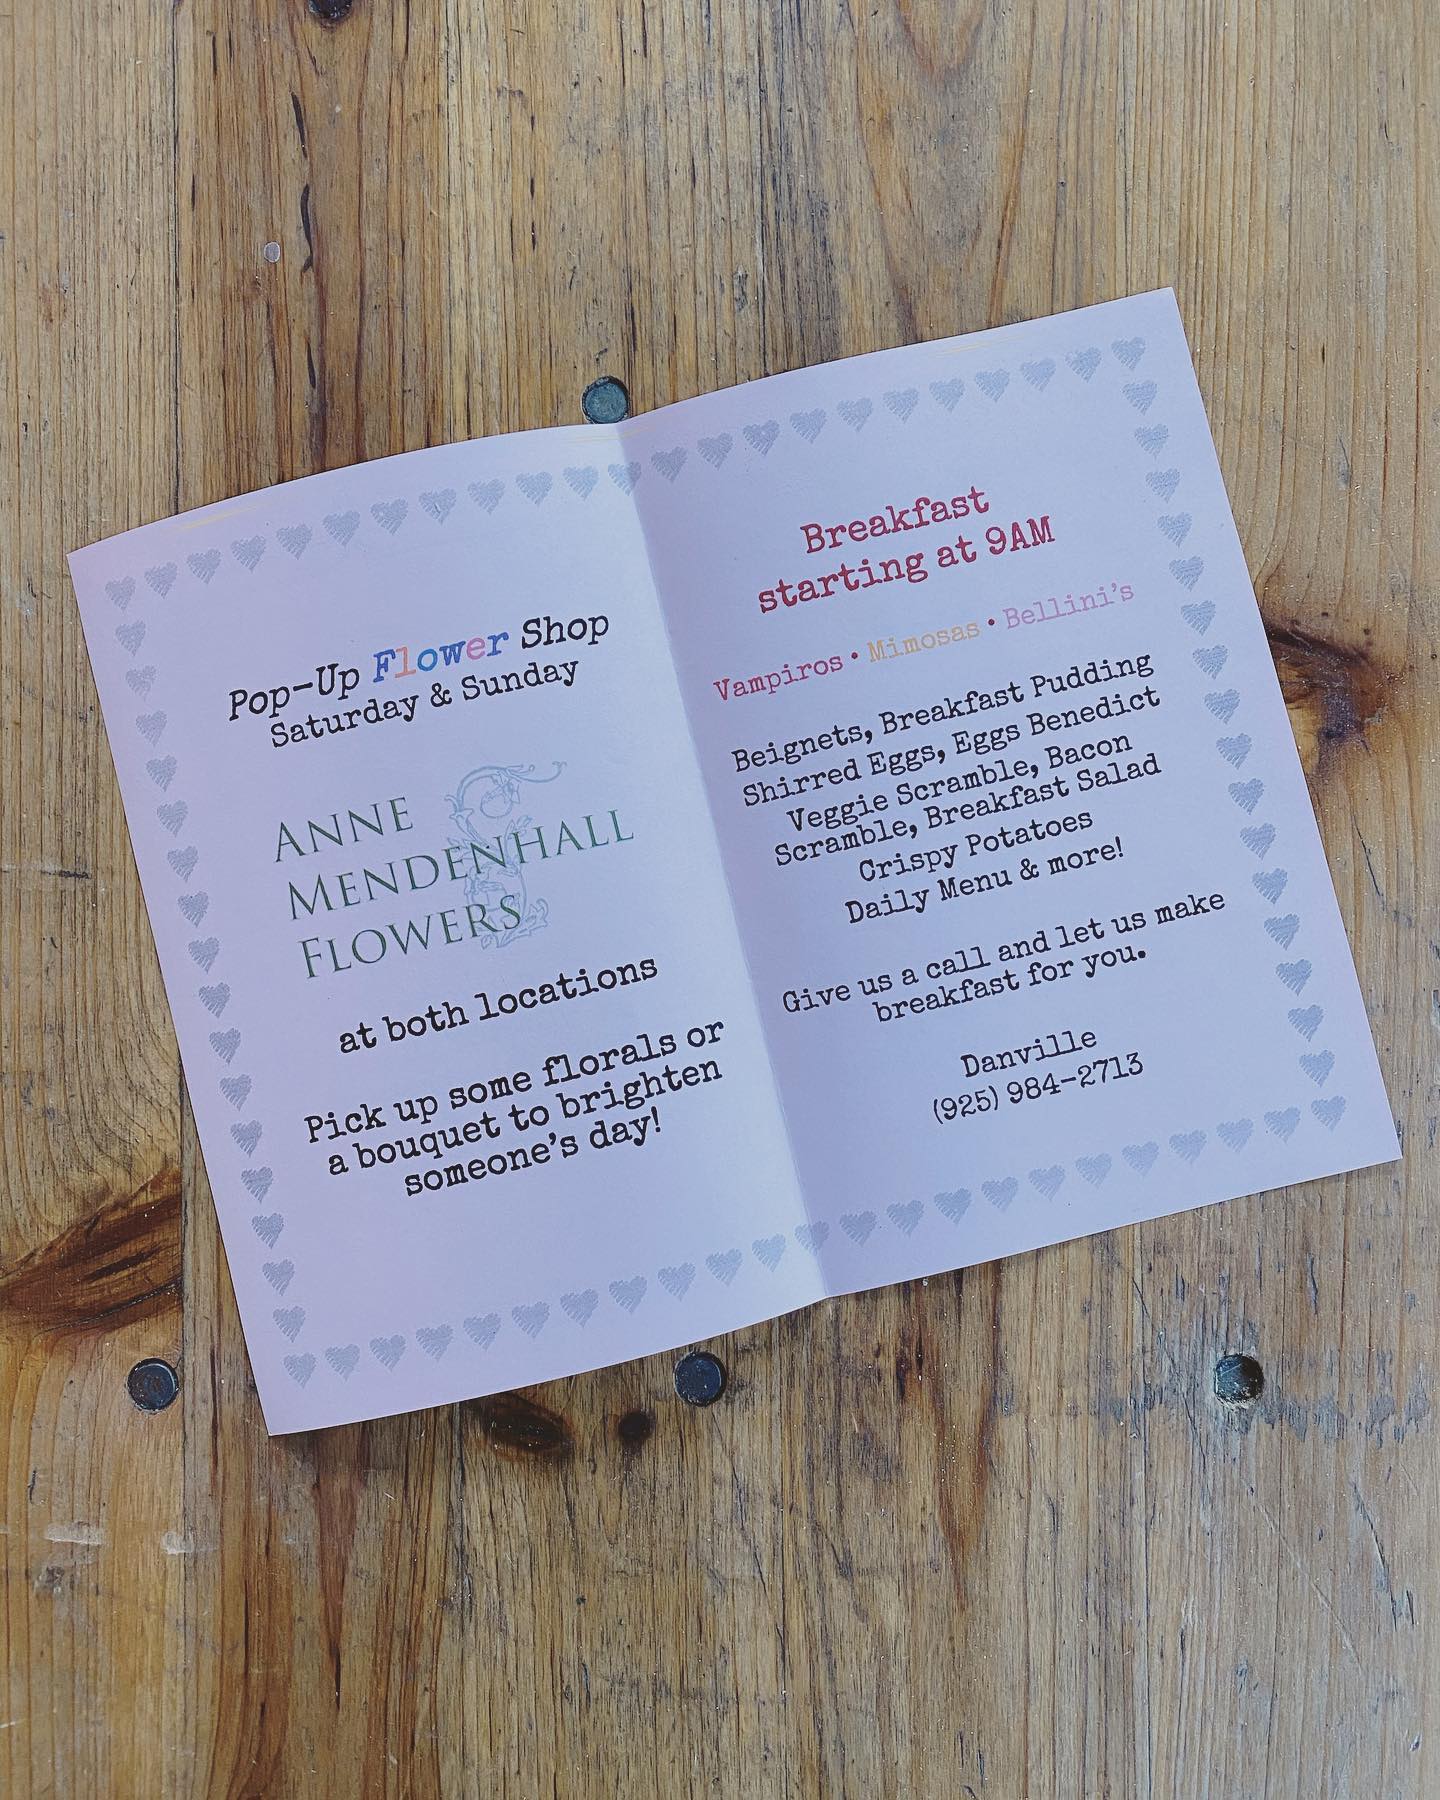 Pop-Up Flower Shop
Saturday & Sunday
ANNE
MENDENHALL
FLOWERS
at both locations
Pick up some florals or
a bouquet to brighten
someone's day!
Breakfast
starting at 9AM
Vampiros • Mimosas • Bellini's
Beignets, Breakfast Pudding
Shirred Eggs, Eggs Benedict
Veggie Scramble, Bacon
Scramble, Breakfast Salad
Crispy Potatoes
Daily Menu & more!
Give us a call and let us make
breakfast for you.
Danville
(925) 984-2713